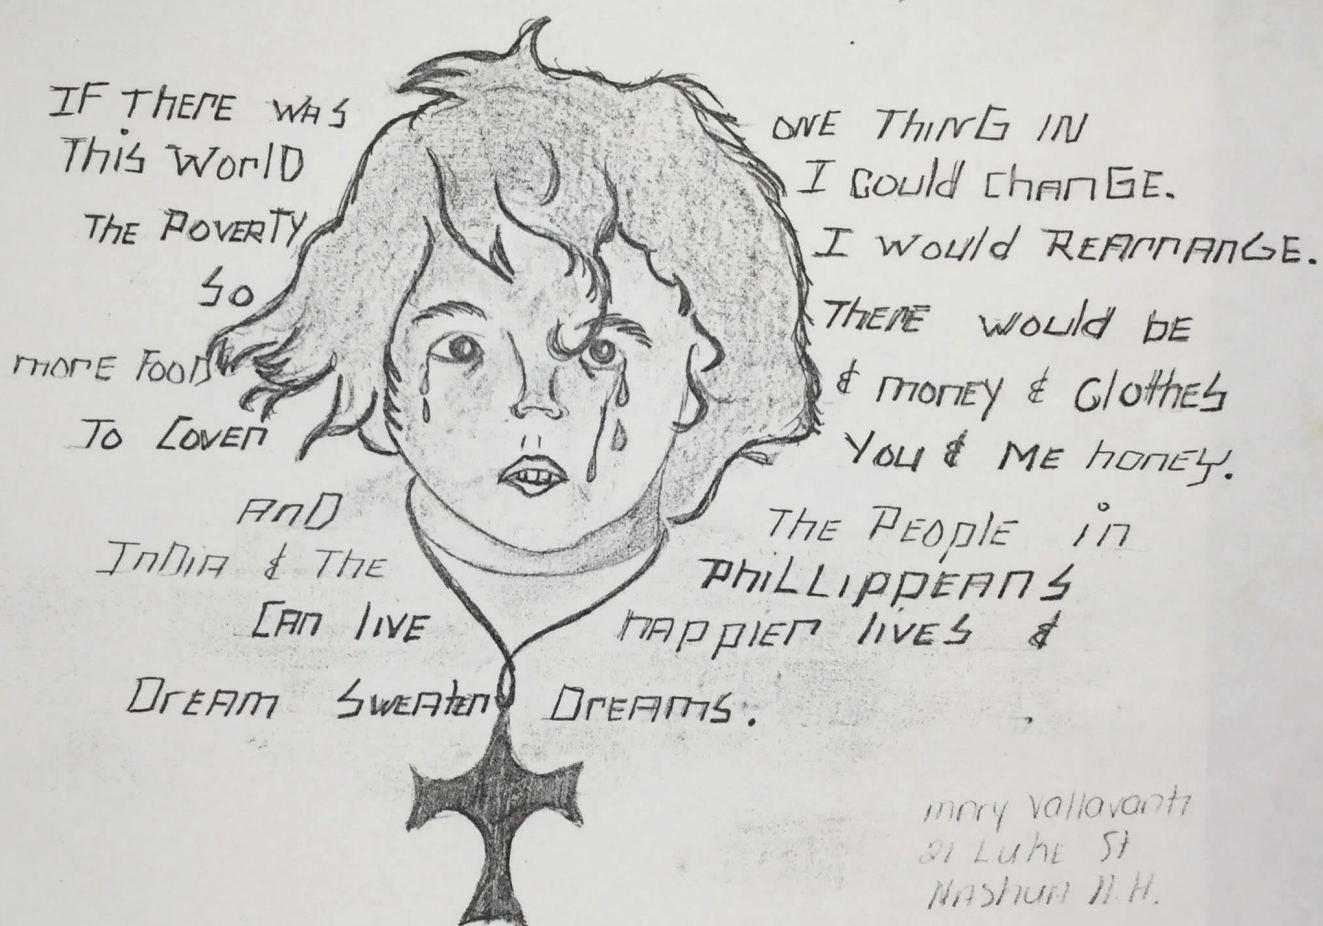 IF THERE WAS ONE THING IN
THIS WORLD I COULD CHANGE.
THE POVERTY I WOULD REARRANGE.
SO THERE WOULD BE
MORE FOOD & MONEY & CLOTHES
TO COVER YOU & ME HONEY.
AND THE PEOPLE IN
INDIA & THE PHILLIPPEANS
CAN LIVE HAPPIER LIVES &
DREAM SWEATER DREAMS.
MARY Vallavanti
21 LUKE St
NASHUA N.H.